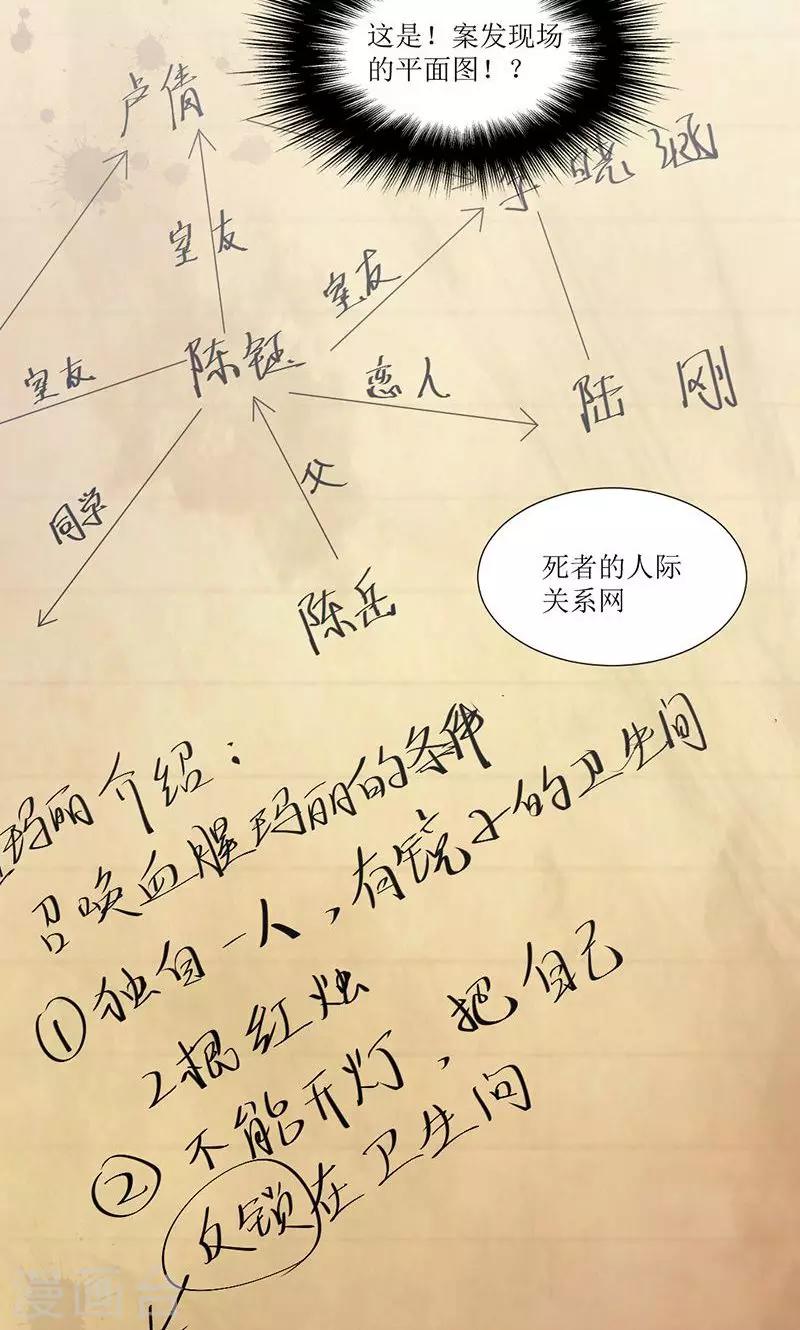 这是！案发现场
的平面图！？
卢倩
晓涵
室友
室友
陈钰
室友
恋人
陆刚
同学
父
陈岳
死者的人际
关系网
玛丽介绍：
召唤血腥玛丽的条件
①独自一人，有镜子的卫生间
2根红烛
②不能开灯，把自己
反锁在卫生间
漫画台